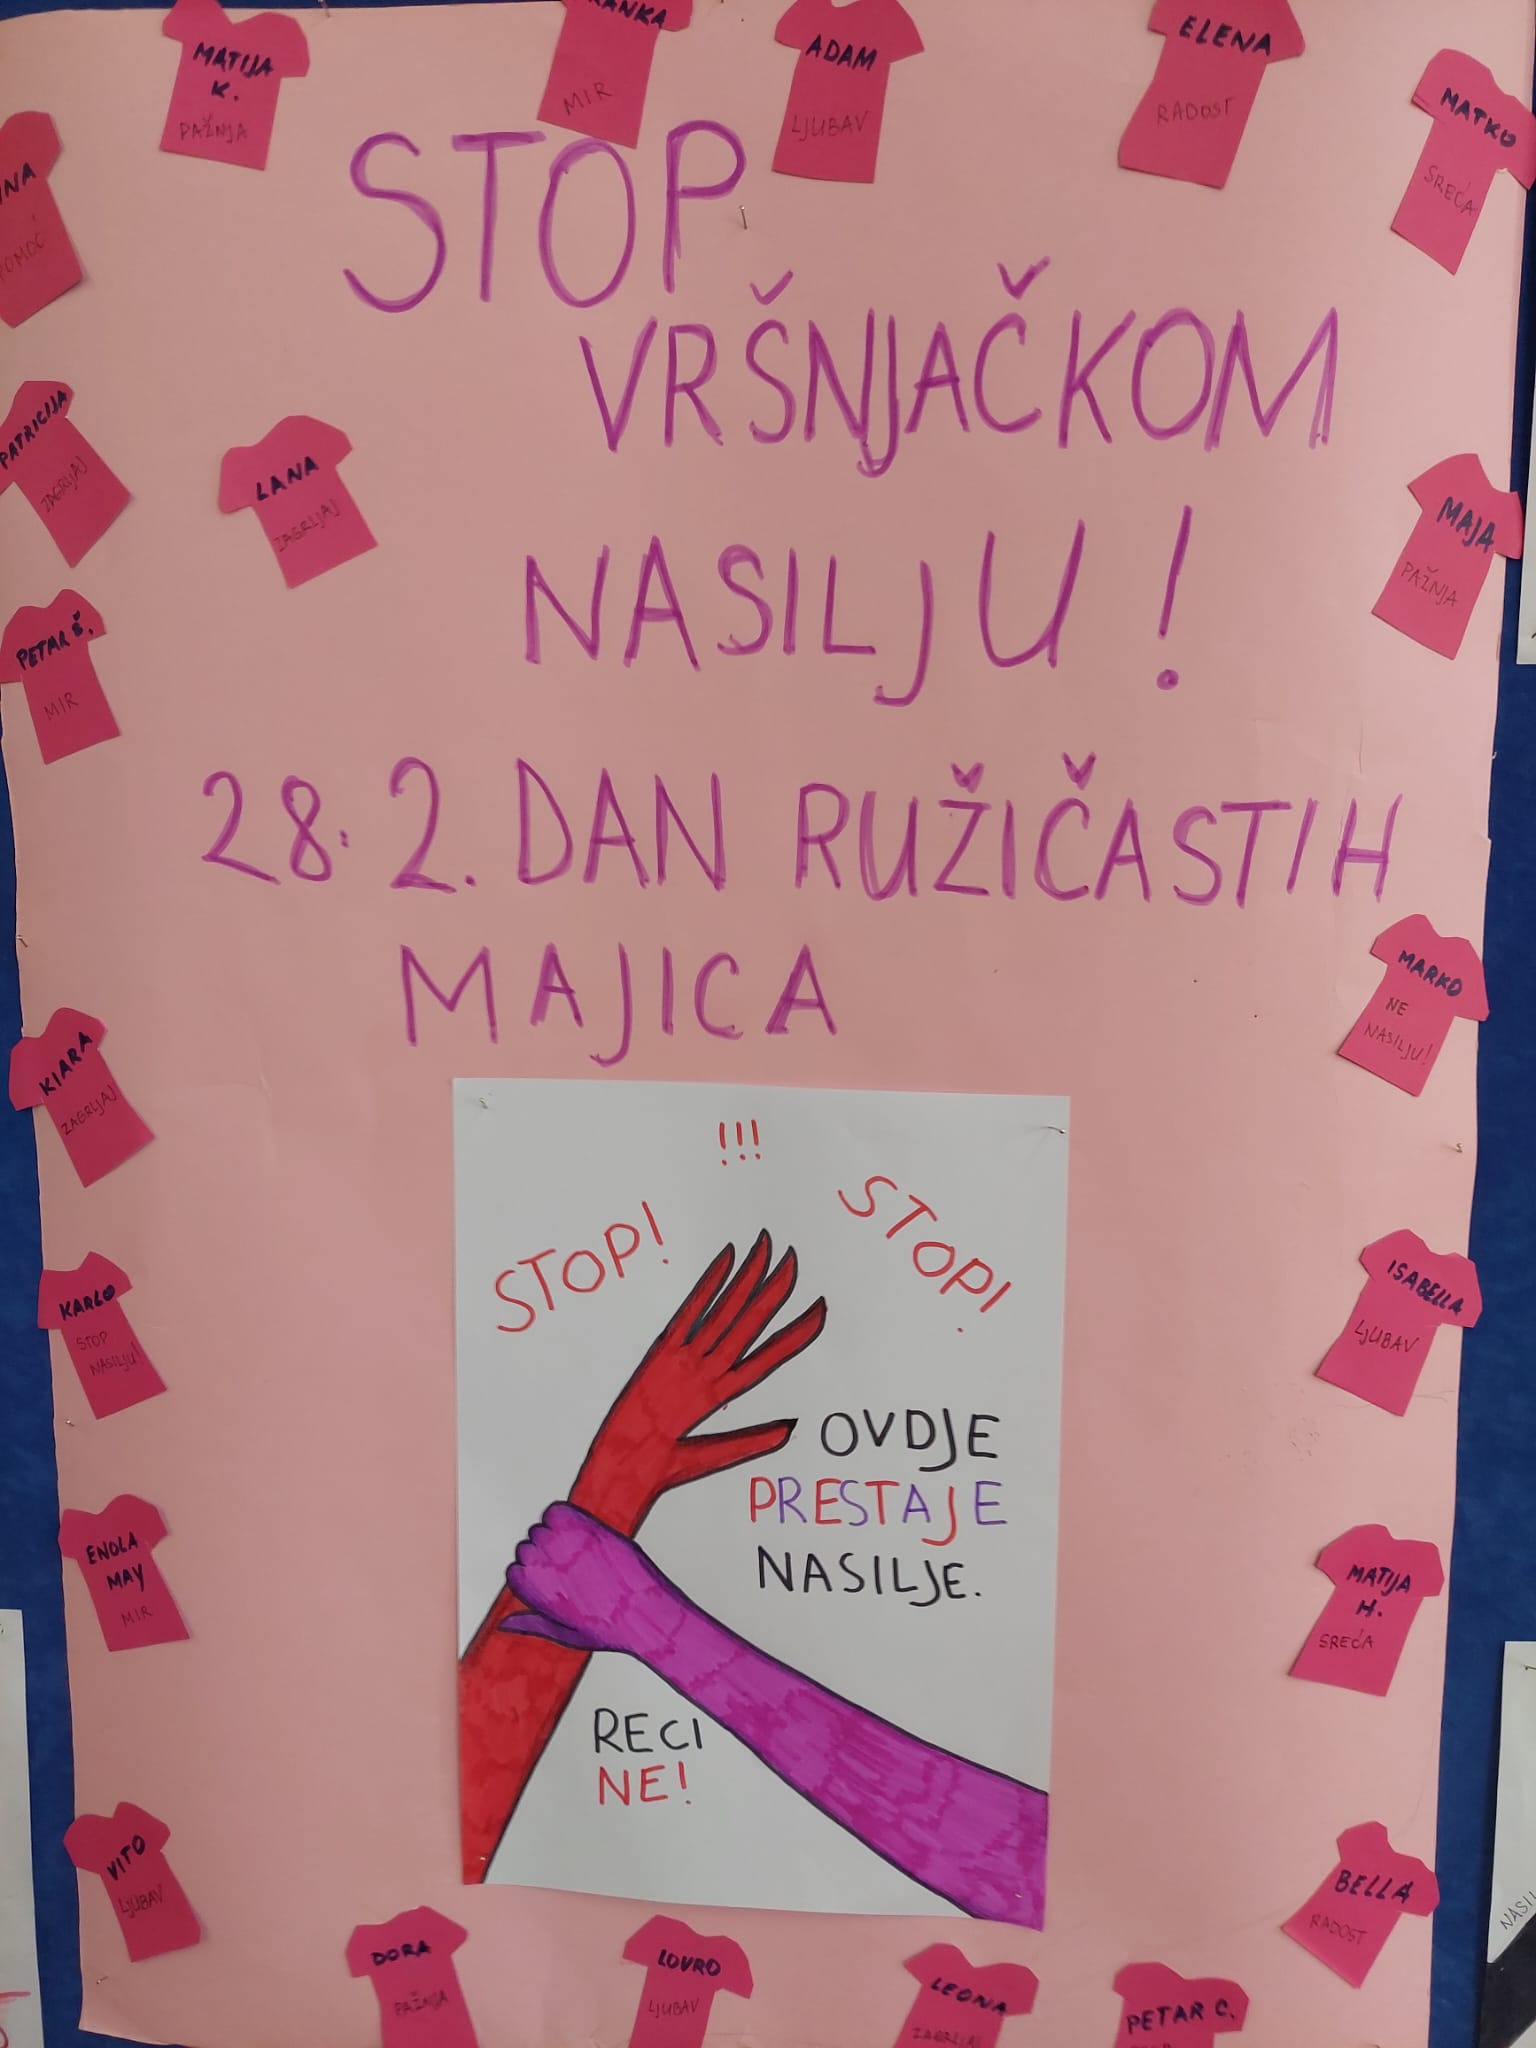 MATIJA
K.
PAŽNJA
MIR
ADAM
LJUBAV
ELENA
RADOST
MATKO
SREĆA
STOP
VRŠNJAČKOM
NASILJU!
28.2. DAN RUŽIČASTIH
MAJICA
PATRICIJA
ZAGRLJAJ
LANA
ZAGRLJAJ
MAJA
PAŽNJA
PETAR Š.
MIR
MARKO
NE
NASILJU!
KIARA
ZAGRLJAJ
KARLO
STOP
NASILJU!
ISABELLA
LJUBAV
ENOLA
MAY
MIR
MATIJA
H.
SREĆA
VITO
LJUBAV
BELLA
RADOST
DORA
PAŽNJA
LOVRO
LJUBAV
LEONA
ZAGRLJAJ
PETAR C.
!!!
STOP!
STOP!
OVDJE
PRESTAJE
NASILJE.
RECI
NE!